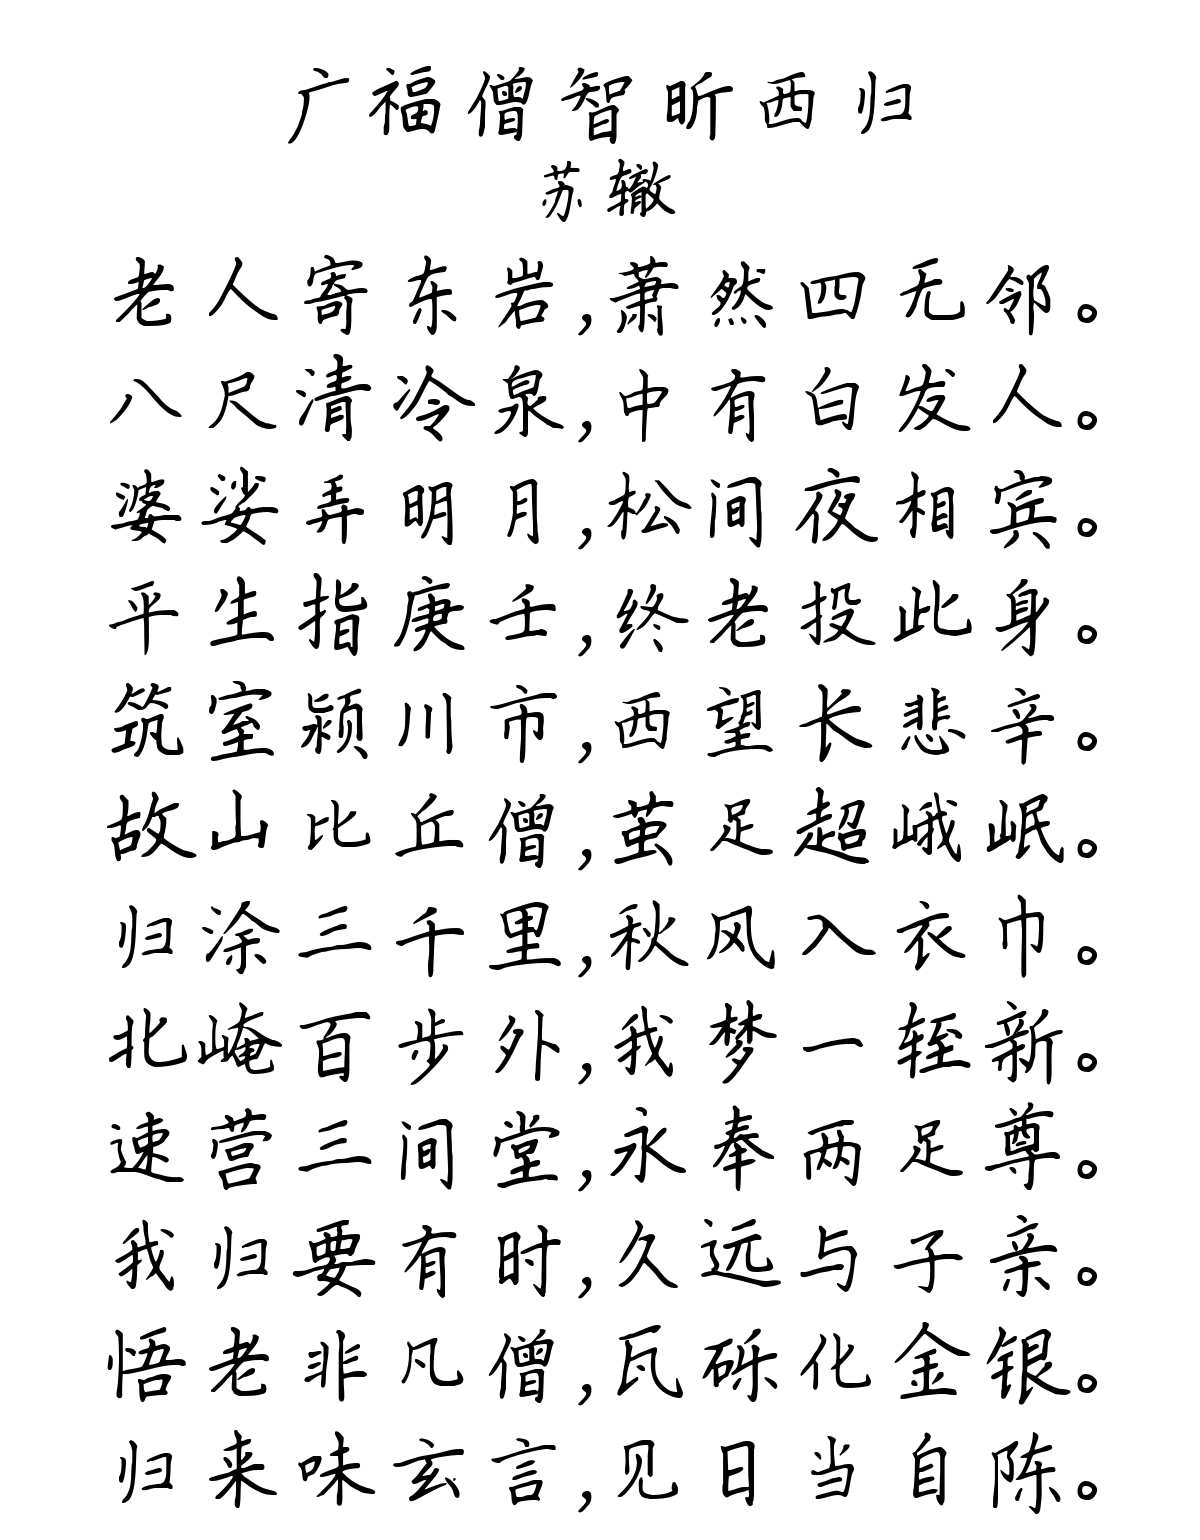 广福僧智昕西归
苏辙
老人寄东岩,萧然四无邻。
八尺清冷泉,中有白发人。
婆娑弄明月,松间夜相宾。
平生指庚壬,终老投此身。
筑室颍川市,西望长悲辛。
故山比丘僧,茧足超峨岷。
归涂三千里,秋风入衣巾。
北崦百步外,我梦一轾新。
速营三间堂,永奉两足尊。
我归要有时,久远与子亲。
悟老非凡僧,瓦砾化金银。
归来味玄言,见日当自陈。